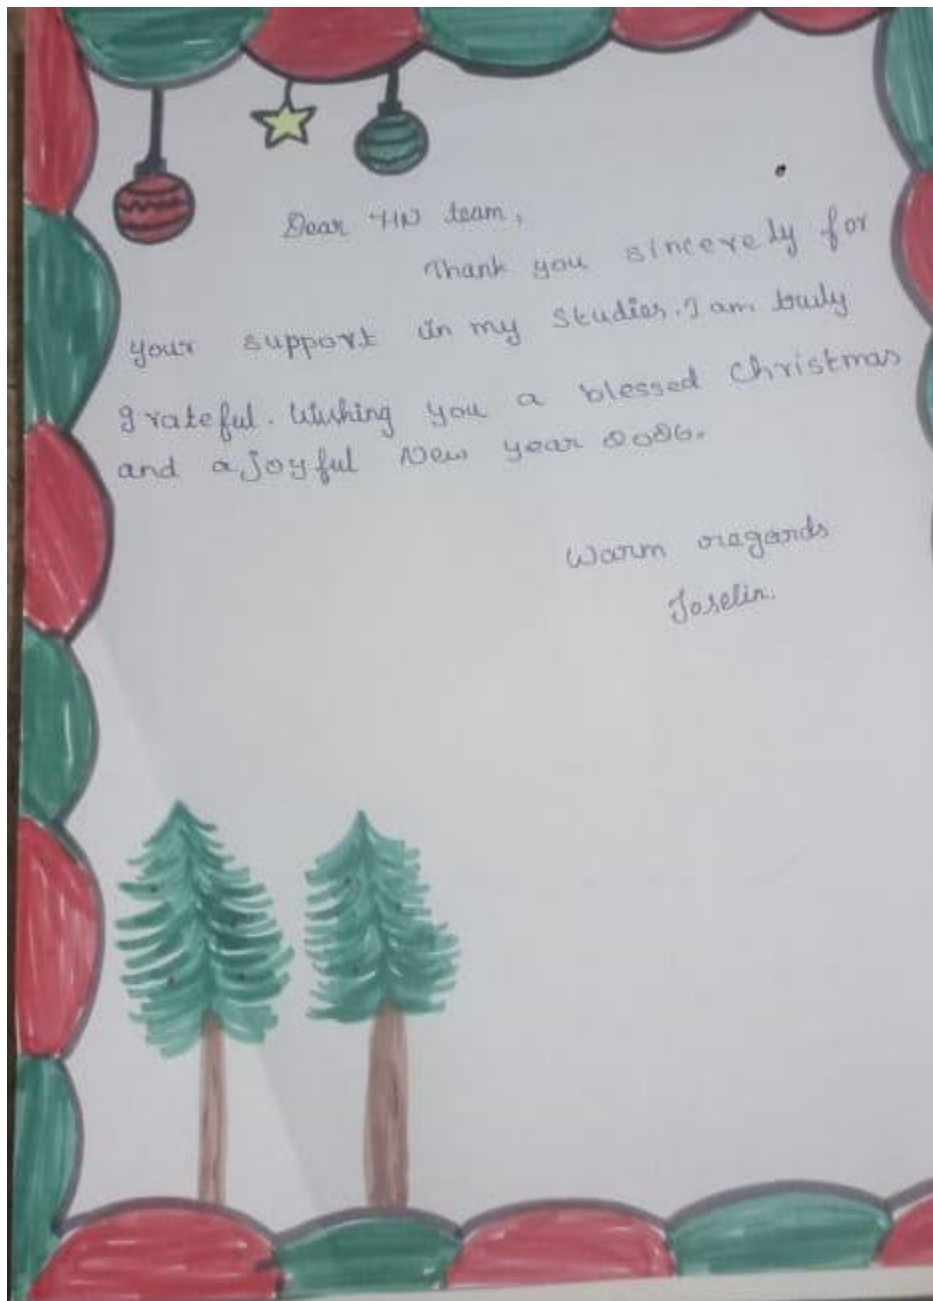 Dear 4N team,
Thank you sincerely for
your support in my studies. I am truly
grateful. Wishing you a blessed Christmas
and a joyful New year 2026.
Warm regards
Joselin.